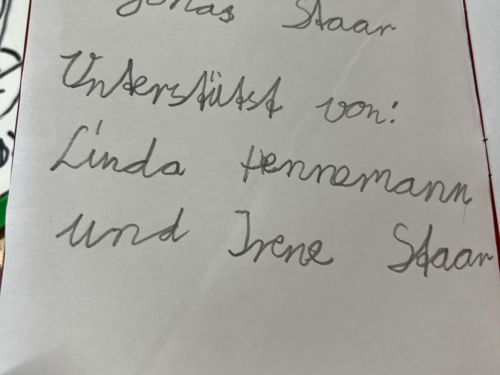 Jonas Staar
Unterstütst von:
Linda Hennemann
und Irene Staar